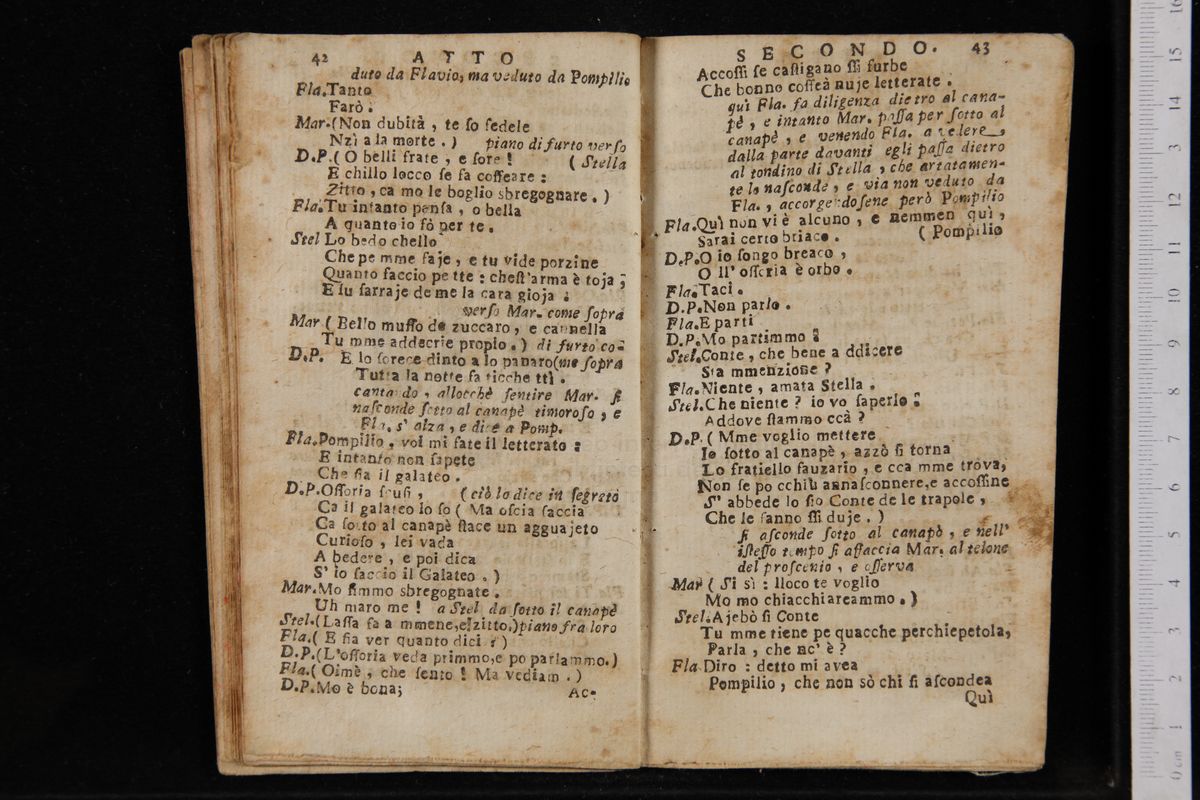 42 ATTO
duto da Flavio, ma veduto da Pompilio
Fla.Tanto
Farò.
Mar.(Non dubità, te ſo fedele
Nzì a la morte.) piano di furto verſo
D.P.(O belli frate, e ſore! (Stella
E chillo locco ſe fa coffeare:
Zitto, ca mo le boglio sbregognare.)
Fla.Tu intanto penſa, o bella
A quanto io fò per te.
Stel Lo bedo chello
Che pe mme faje, e tu vide porzine
Quanto faccio pe tte: cheſt'arma è toja;
E ſu ſarraje de me la cara gioja:
verſo Mar. come ſopra
Mar (Bello muſſo de zuccaro, e cannella
Tu mme addecrie propio.) di furto co-
D.P. E lo ſorece dinto a lo panaro(me ſopra
Tutta la notte fa ticche ttì.
cantando, allocchè ſentire Mar. ſi
naſconde ſotto al canapè timoroſo, e
Fla. s'alza, e dice a Pomp.
Fla.Pompilio, voi mi fate il letterato:
E intanto non ſapete
Che ſia il galateo.
D.P.Oſſoria ſcuſi, (ciò lo dice in ſegreto
Ca il galateo lo ſo (Ma oſcia ſaccia
Ca ſotto al canapè ſtace un agguajeto
Curioſo, lei vada
A bedere, e poi dica
S'io ſaccio il Galateo.)
Mar.Mo ſimmo sbregognate.
Uh maro me! a Stel da ſotto il canapè
Stel.(Laſſa fa a mmene,e zitto.)piano fra loro
Fla.(E ſia ver quanto dici?)
D.P.(L'oſſoria veda primmo,e po parlammo.)
Fla.(Oimè, che ſento! Ma vediam.)
D.P.Mo è bona;
Ac-
SECONDO. 43
Accoſſi ſe caſtigano ſſi furbe
Che bonno coffeà nuje letterate.
quì Fla. fa diligenza dietro al cana-
pè, e intanto Mar. paſſa per ſotto al
canapè, e venendo Fla. a vedere,
dalla parte davanti egli paſſa dietro
al tondino di Stella, che artatamen-
te lo naſconde, e via non veduto da
Fla., accorgendoſene però Pompilio
Fla.Quì non vi è alcuno, e nemmen quì,
Sarai certo briaco. (Pompilio
D.P.O io ſongo breaco,
O ll'oſſeria è orbo.
Fla.Taci.
D.P.Non parlo.
Fla.E parti
D.P.Mo partimmo:
Stel.Conte, che bene a ddicere
Sta mmenzione?
Fla.Niente, amata Stella.
Stel.Che niente? io vo ſaperlo:
Addove ſtammo ccà?
D.P.(Mme voglio mettere
Io ſotto al canapè, azzò ſi torna
Lo fratiello fauzario, e cca mme trova,
Non ſe po cchiù annaſconnere,e accoſſine
S'abbede lo ſio Conte de le trapole,
Che le fanno ſſi duje.)
ſi aſconde ſotto al canapè, e nell'
iſteſſo tempo ſi affaccia Mar. al telone
del proſcenio, e oſſerva
Mar (Si sì: lloco te voglio
Mo mo chiacchiareammo.)
Stel.Ajebò ſi Conte
Tu mme tiene pe quacche perchiepetola,
Parla, che nc'è?
Fla.Diro: detto mi avea
Pompilio, che non sò chi ſi aſcondea
Quì